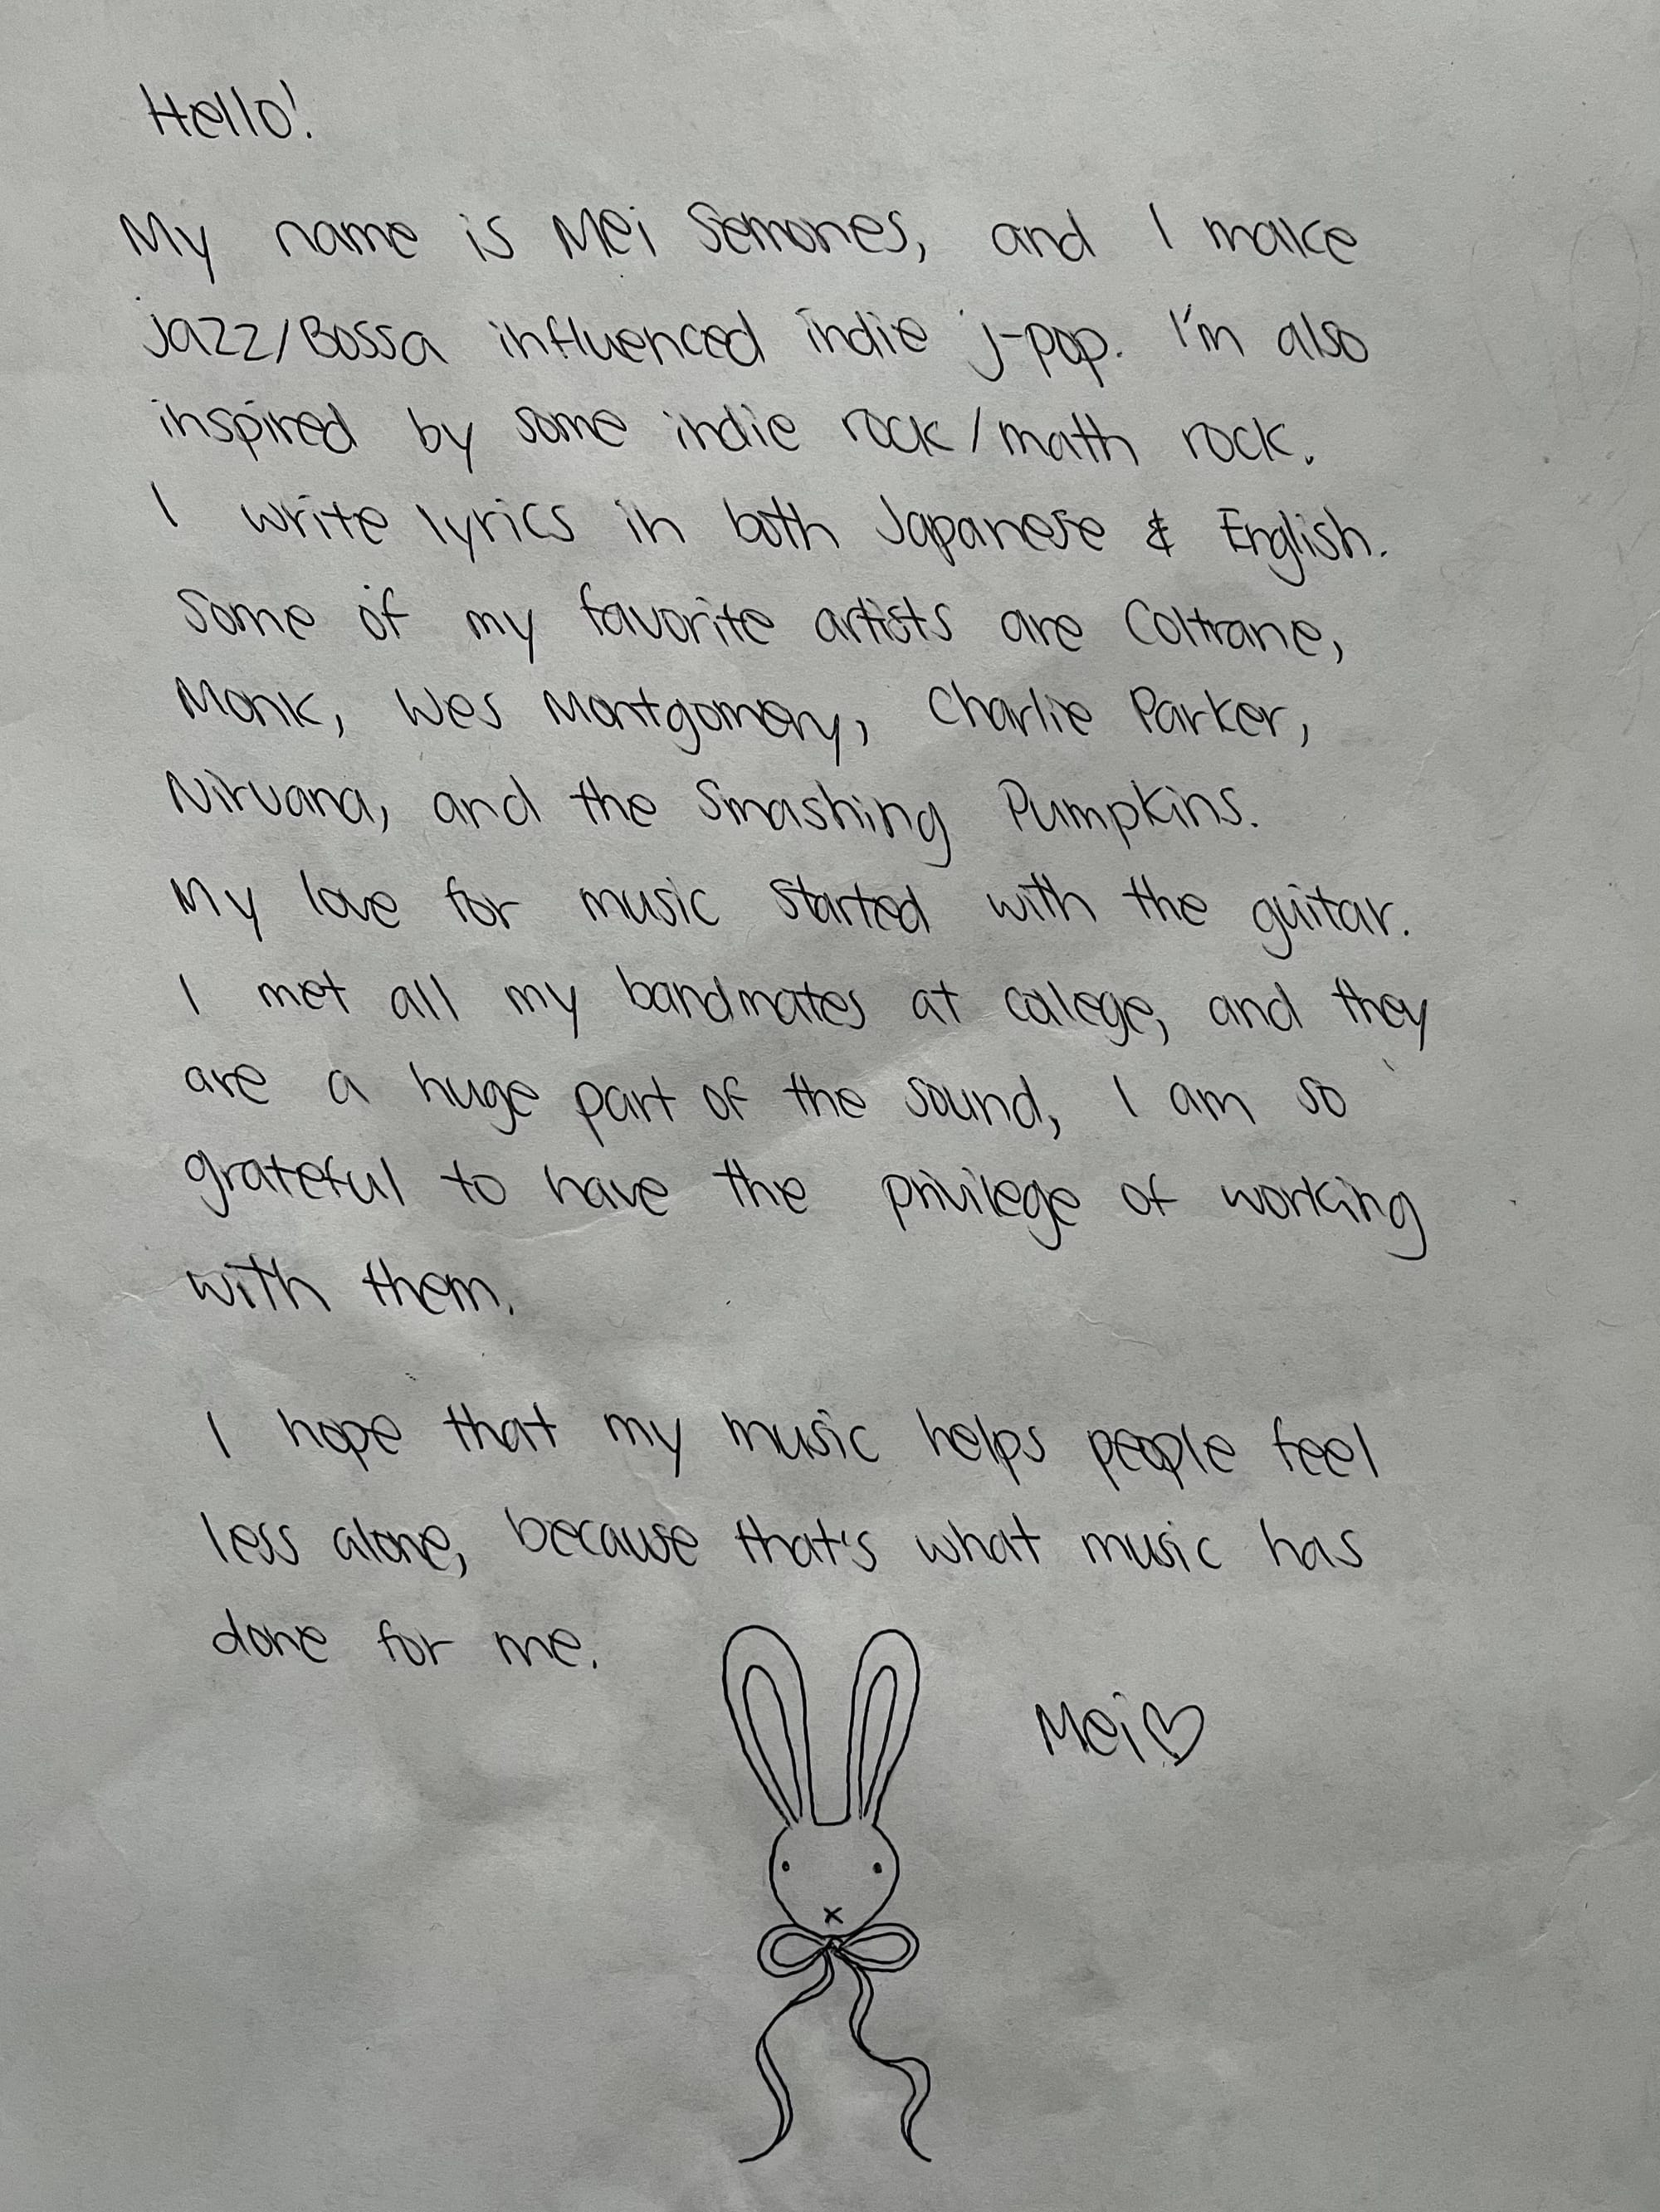 Hello!
My name is Mei Semones, and I make
jazz/Bossa influenced indie j-pop. I'm also
inspired by some indie rock/math rock.
I write lyrics in both Japanese & English.
Some of my favorite artists are Coltrane,
Monk, Wes Montgomery, Charlie Parker,
Nirvana, and the Smashing Pumpkins.
My love for music started with the guitar.
I met all my bandmates at college, and they
are a huge part of the sound, I am so
grateful to have the privilege of working
with them.
I hope that my music helps people feel
less alone, because that's what music has
done for me.
Mei♡